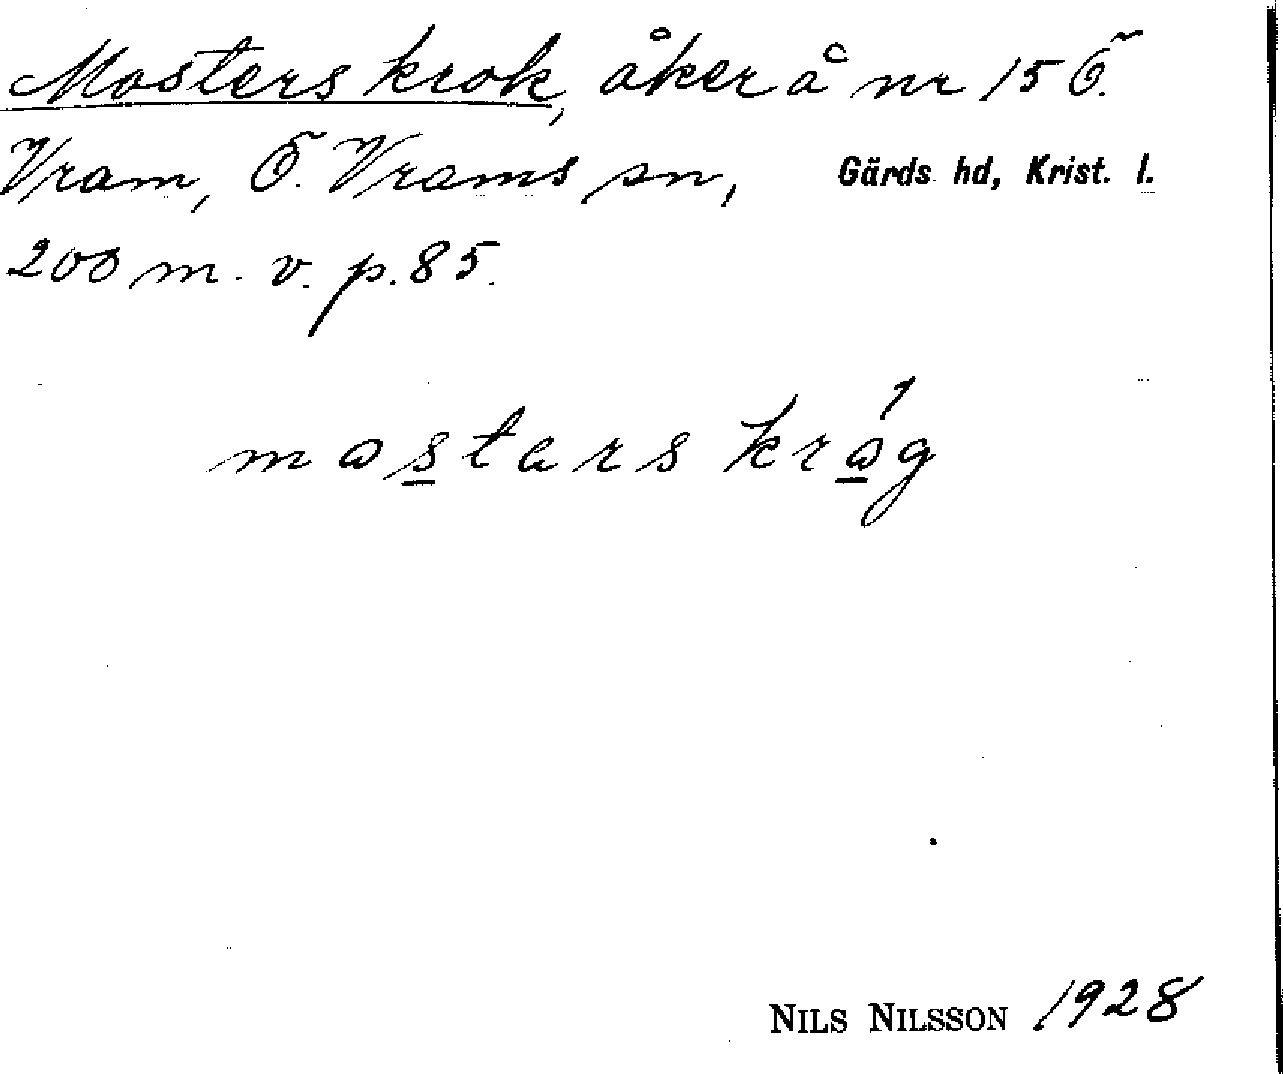 Mosters krok, åker å nr 15 Ö.
Vram, Ö. Vrams sn, Gärds hd, Krist. l.
200 m. v. p. 85.
mostars króg
NILS NILSSON 1928